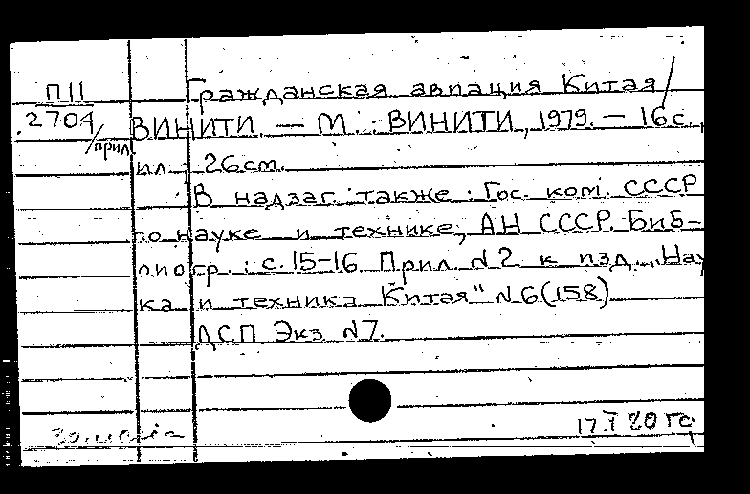 П11
2704/прил.
Гражданская авиация Китая /
ВИНИТИ. — М. : ВИНИТИ, 1979. — 16 с.,
ил. ; 26 см.
В надзаг. также : Гос. ком. СССР
по науке и технике, АН СССР. Биб-
лиогр. : с. 15-16. Прил. N 2 к изд. „Нау
ка и техника Китая" N 6(158)
ДСП Экз. N 7.
17.I 80 гф